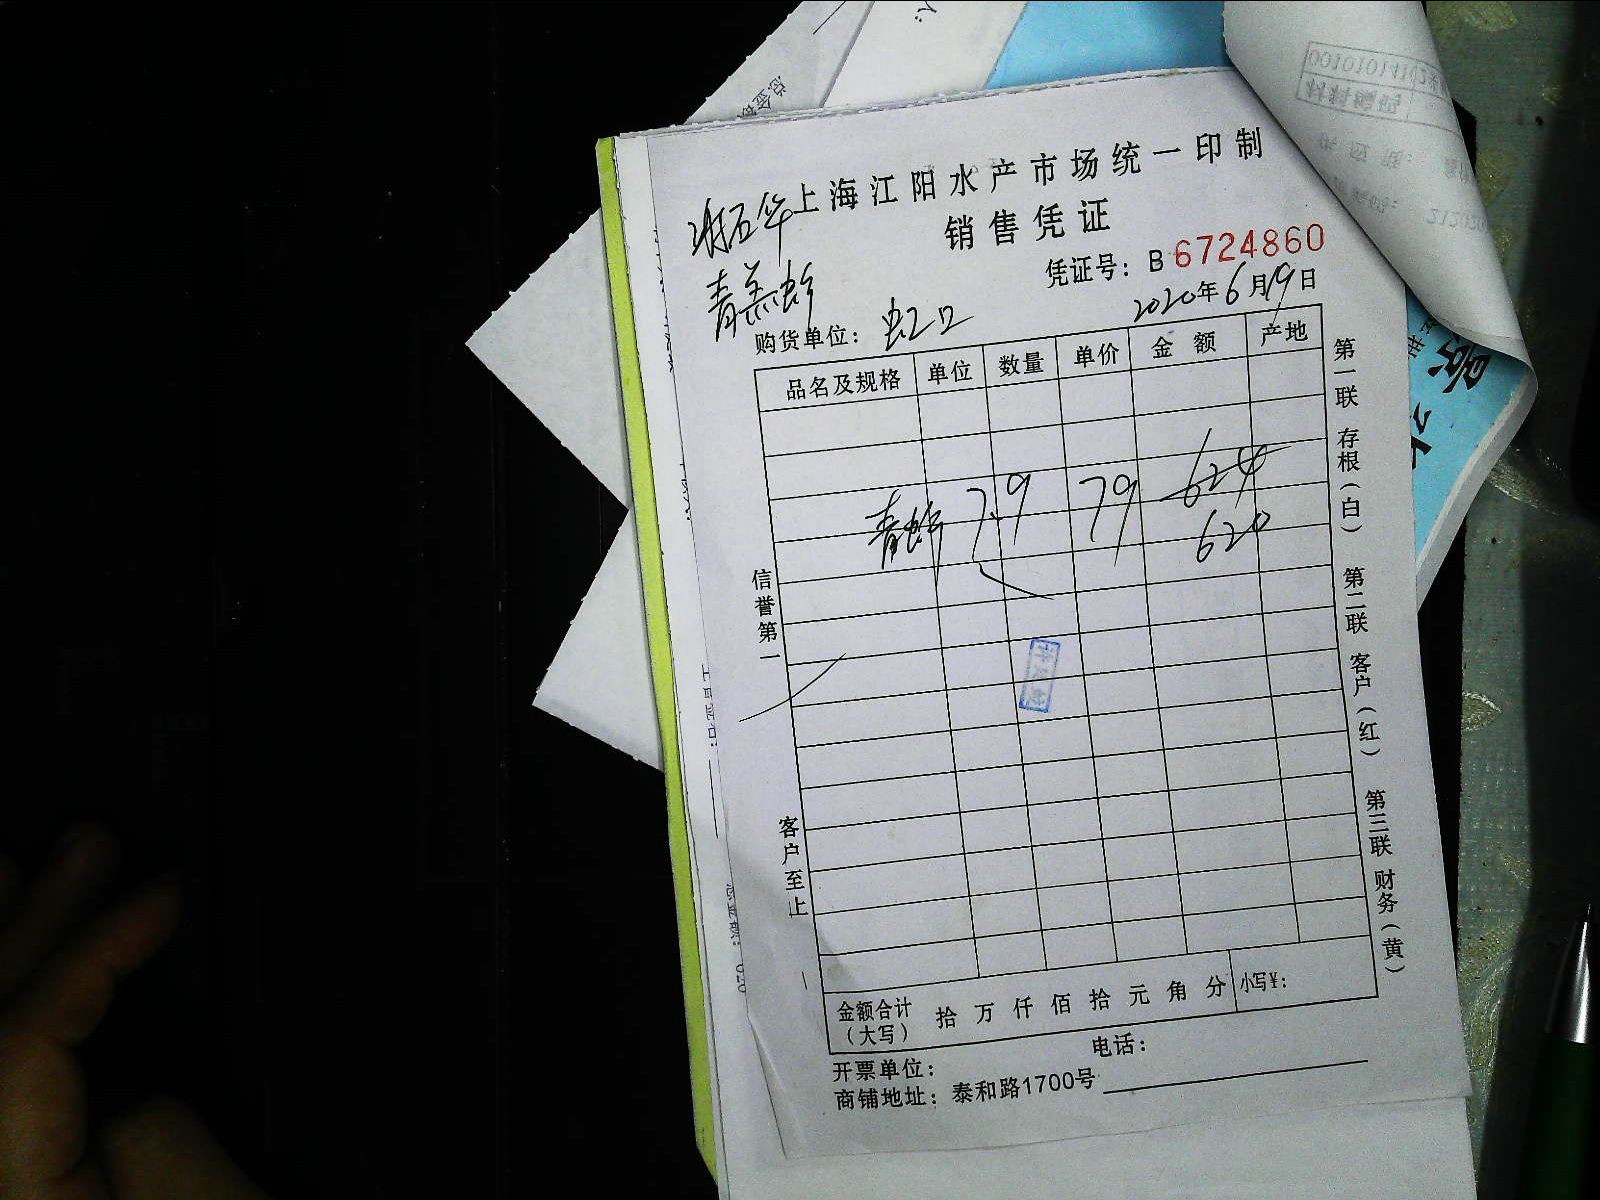 上海江阳水产市场统一印制
销售凭证
凭证号：B 6724860
2020年6月19日
购货单位：虹口
品名及规格 单位 数量 单价 金额 产地
624
青虾 7.9 79 620
信誉第一
客户至上
第一联 存根（白） 第二联 客户（红） 第三联 财务（黄）
金额合计（大写） 拾 万 仟 佰 拾 元 角 分 小写¥：
开票单位： 电话：
商铺地址：泰和路1700号